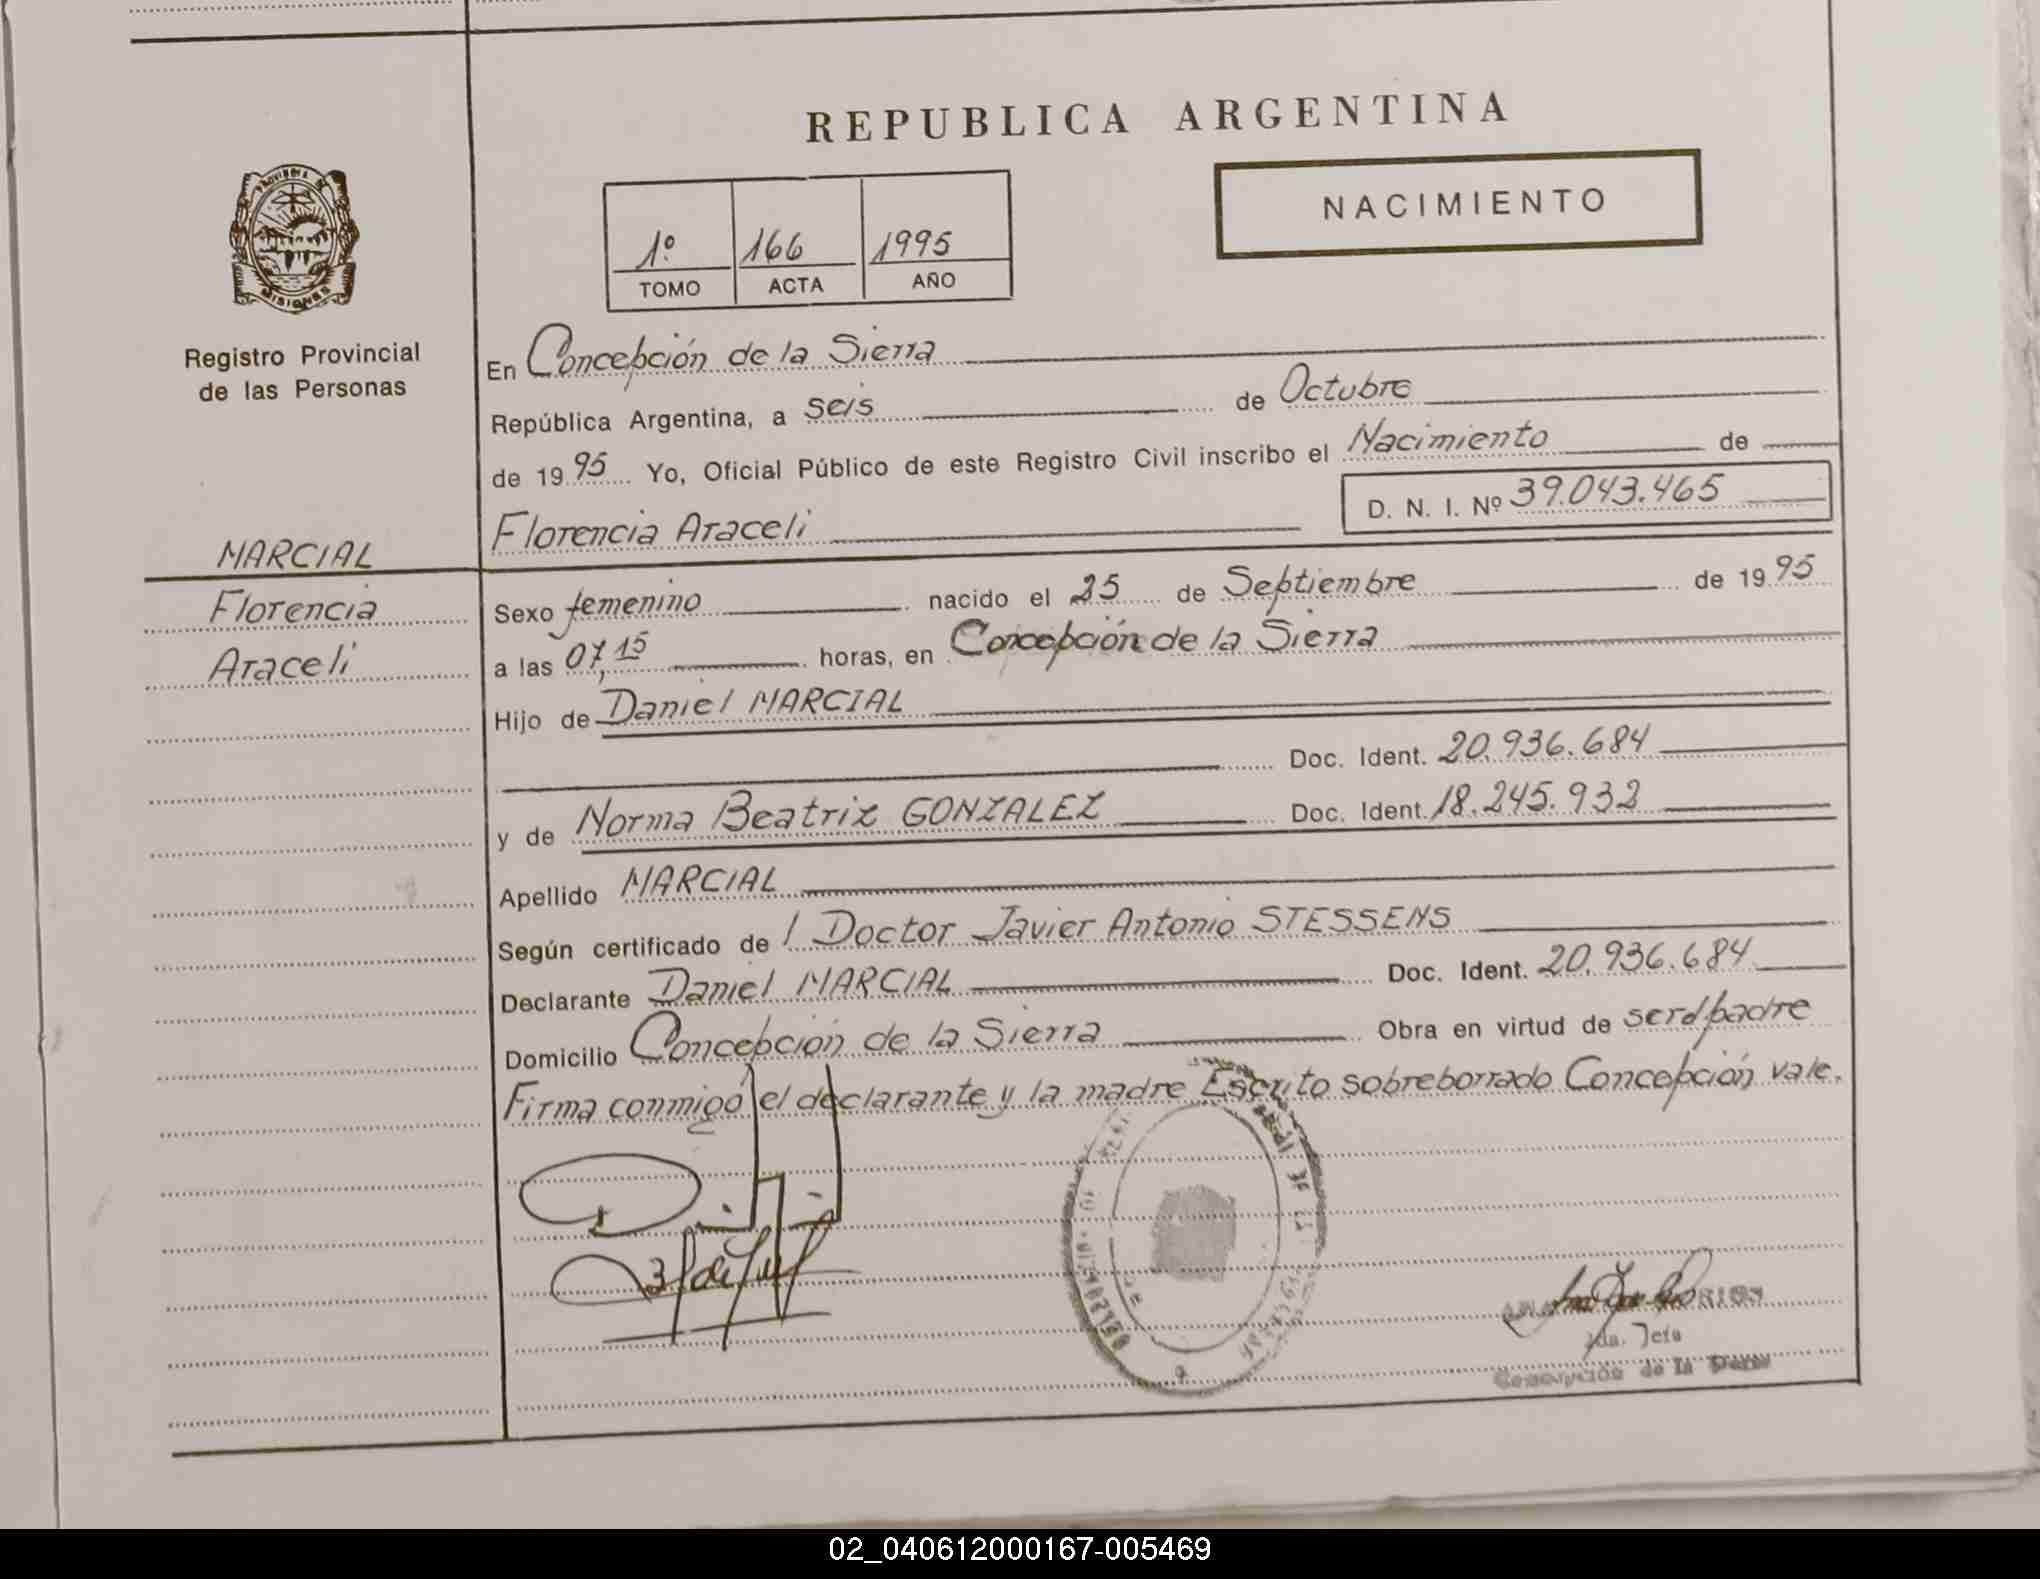 REPUBLICA ARGENTINA
PROVINCIA DE
MISIONES
Registro Provincial
de las Personas
NACIMIENTO
1º 166 1995
TOMO ACTA AÑO
En Concepción de la Sierra
República Argentina, a seis de Octubre
de 1995 Yo, Oficial Público de este Registro Civil inscribo el Nacimiento de
D. N. I. Nº 39.043.465
Florencia Araceli
MARCIAL
Florencia
Araceli
Sexo femenino nacido el 25 de Septiembre de 1995
a las 07,15 horas, en Concepción de la Sierra
Hijo de Daniel MARCIAL
Doc. Ident. 20.936.684
y de Norma Beatriz GONZALEZ Doc. Ident. 18.245.932
Apellido MARCIAL
Según certificado de l Doctor Javier Antonio STESSENS
Declarante Daniel MARCIAL Doc. Ident. 20.936.684
Domicilio Concepción de la Sierra Obra en virtud de ser el padre
Firma conmigo el declarante y la madre Escrito sobreborrado Concepción vale.
Jefa
Concepción de la Sierra
02_040612000167-005469